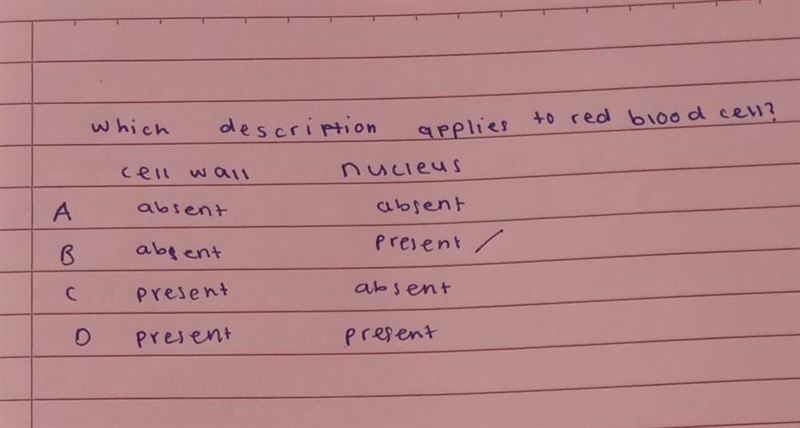 which description applies to red blood cell?
cell wall nucleus
A absent absent
B absent present /
C present absent
D present present